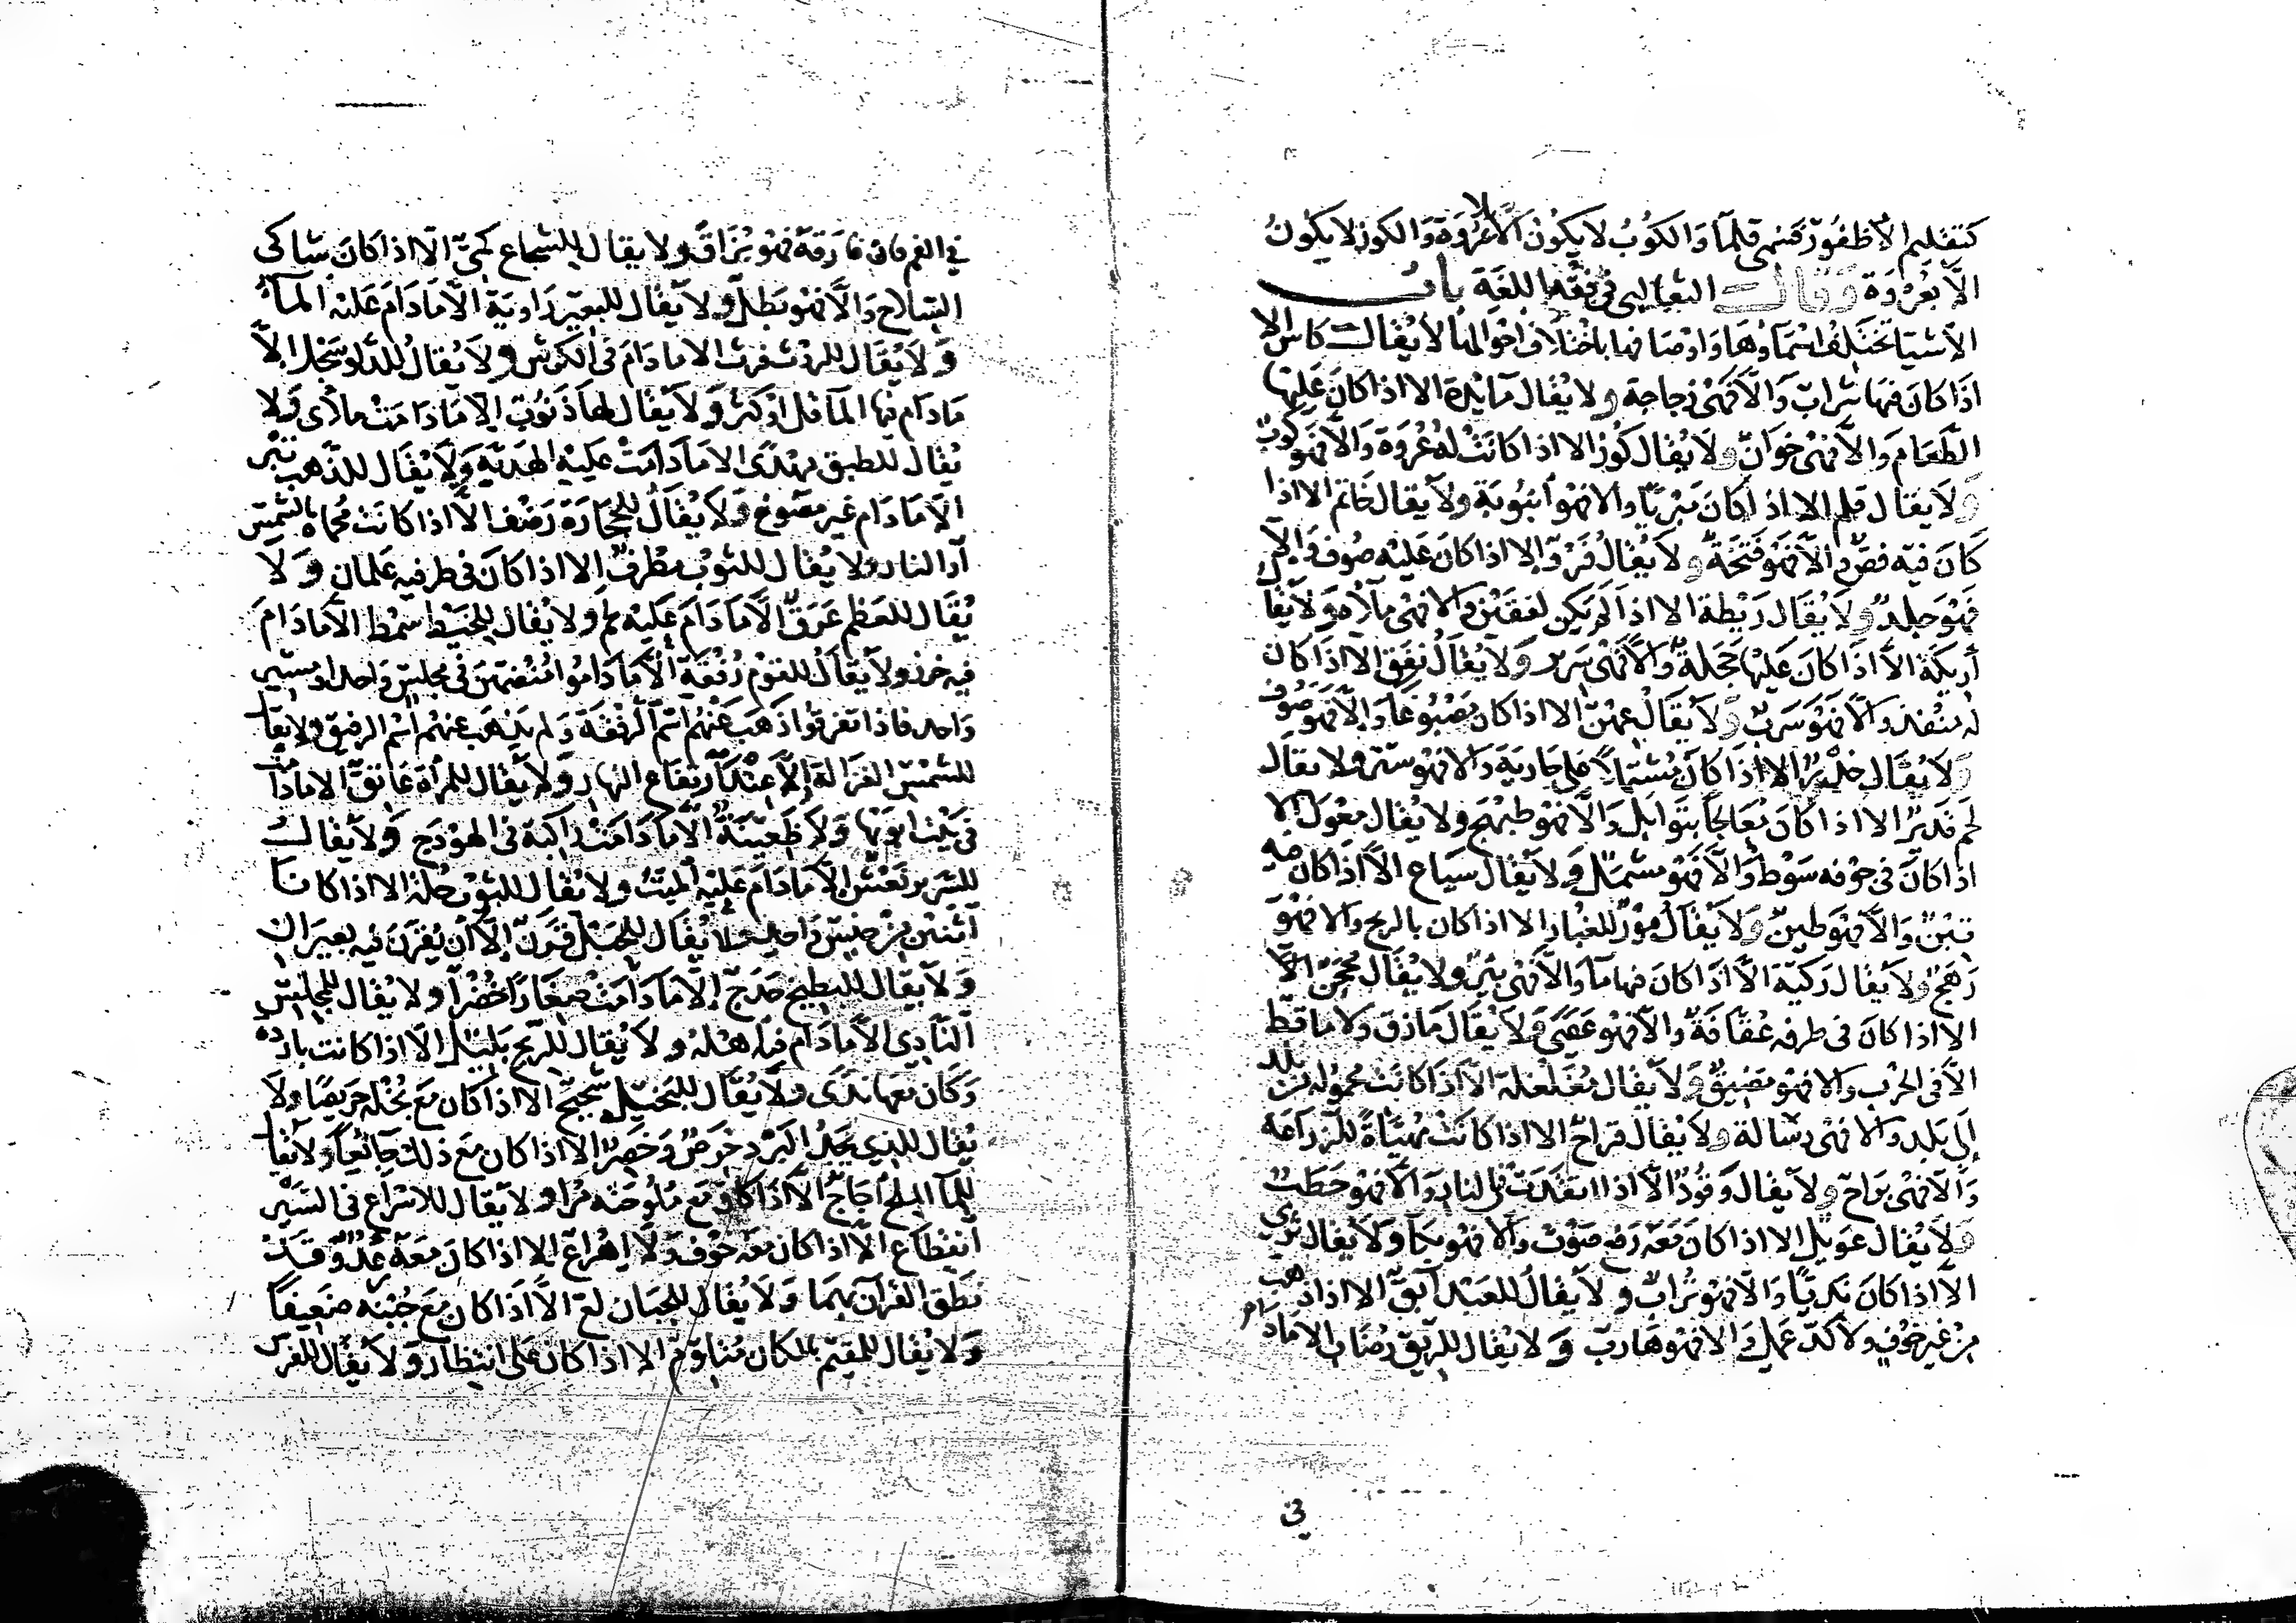 كتقليم الأظفور فسمى قلما والكوب لا يكون الا بلا عروة والكوز لا يكون
الا بعروة وقال الثعالبي في فقه اللغة باب
الأشيا تختلف اسماؤها واوصافها باختلاف احوالها لا يقال كاس الا
اذا كان فيها شراب والا فهى زجاجة ولا يقال مائدة الا اذا كان عليها
الطعام والا فهى خوان ولا يقال كوز الا اذا كانت له عروة والا فهو كوب
ولا يقال قلم الا اذا كان مبريا والا فهو انبوبة ولا يقال خاتم الا اذا
كان فيه فص والا فهو فتخة ولا يقال فرو الا اذا كان عليه صوف والا
فهو جلد ولا يقال ريطة الا اذا لم يكن لفقين والا فهى ملاءة ولا يقا
أريكة الا اذا كان عليها حجلة والا فهى سرير ولا يقال نفق الا اذا كان
له منفذ والا فهو سرب ولا يقال عهن الا اذا كان مصبوغا والا فهو صوف
ولا يقال خدر الا اذا كان مشتملا على جارية والا فهو ستر ولا يقال
لحم قدير الا اذا كان معالجا بتوابل والا فهو طبيخ ولا يقال مغول الا
اذا كان في جوفه سوط والا فهو مشمل ولا يقال سياع الا اذا كان فيه
تبن والا فهو طين ولا يقال مور للغبار الا اذا كان بالريح والا فهو
رهج ولا يقال ركية الا اذا كان فيها ما والا فهى بئر ولا يقال محجن الا
الا اذا كان في طرفه عقافة والا فهو عصى ولا يقال مازق ولا ماقط
الا في الحرب والا فهو مضيق ولا يقال مغلغلة الا اذا كانت محمولة من بلد
الى بلد والا فهى رسالة ولا يقال قراح الا اذا كانت مهيأة للزراعة
والا فهى براح ولا يقال وقود الا اذا اتقدت في النار والا فهو حطب
ولا يقال عويل الا اذا كان معه رفع صوت والا فهو بكا ولا يقال ثرى
الا اذا كان نديا والا فهو تراب ولا يقال للعبد آبق الا اذا ذهب
من غير خوف ولا كد عمل والا فهو هارب ولا يقال للريق رضاب الا ما دام
في
في الفم فان فارقه فهو بزاق ولا يقال للشجاع كمى الا اذا كان شاكى
السلاح والا فهو بطل ولا يقال للبعير راوية الا ما دام عليه الماء
ولا يقال للروث فرث الا ما دام في الكرش ولا يقال للدلو سجل الا
ما دام فيها الما قل او كثر ولا يقال لها ذنوب الا ما دامت ملأى ولا
يقال للطبق مهدى الا ما دامت عليه الهدية ولا يقال للذهب تبر
الا ما دام غير مصوغ ولا يقال للحجارة رضف الا اذا كانت محماة بالشمس
أو النار ولا يقال للثوب مطرف الا اذا كان في طرفيه علمان ولا
يقال للعظم عرق الا ما دام عليه لحم ولا يقال للخيط سمط الا ما دام
فيه خرز ولا يقال للقوم رفقة الا ما داموا منضمين في مجلس واحد او مسير
واحد فاذا تفرقوا ذهب عنهم اسم الرفقة ولم يذهب عنهم اسم الرفيق ولا يقا
للشمس الغزالة الا عند ارتفاع النهار ولا يقال للمرأة عاتق الا ما دامت
في بيت ابويها ولا ظعينة الا ما دامت راكبة في الهودج ولا يقال
للسرير نعش الا ما دام عليه الميت ولا يقال للثوب حلة الا اذا كانا
اثنين من جنس واحد ولا يقال للحبل قرن الا أن يقرن فيه بعيران
ولا يقال للبطيخ حدج الا ما دامت صغارا خضرا ولا يقال للمجلس
النادي الا ما دام فيه اهله ولا يقال للريح بليل الا اذا كانت باردة
وكان معها ندى ولا يقال للبخيل شحيح الا اذا كان مع بخله حريصا ولا
يقال للذي يجد البرد خرص وخصر الا اذا كان مع ذلك جائعا ولا يقا
للما الملح أجاج الا اذا كان مع ملوحته مرا ولا يقال للاسراع في السير
اهطاع الا اذا كان معه خوف ولا اهراع الا اذا كان معه عدو وقد
نطق القرآن بهما ولا يقال للجبان لع الا اذا كان مع جبنه ضعيفا
ولا يقال للمقيم بالمكان متلوم الا اذا كان على انتظار ولا يقال للفرس